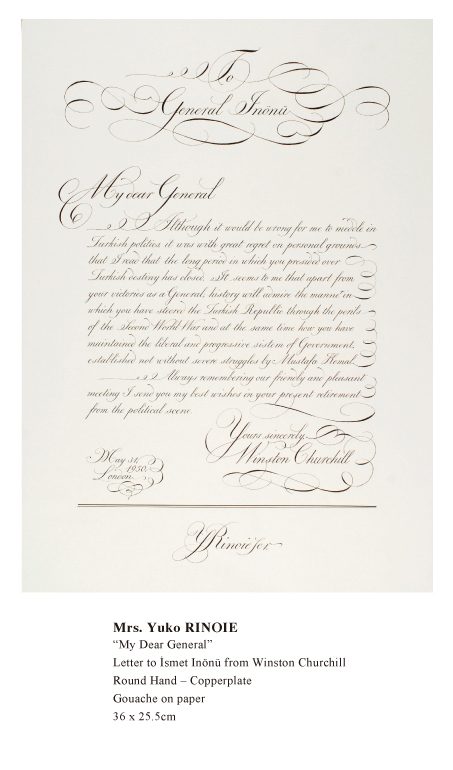 To
General Inönü
My dear General
Although it would be wrong for me to meddle in
Turkish politics, it was with great regret on personal grounds
that I read that the long period in which you presided over
Turkish destiny has closed. It seems to me that apart from
your victories as a General, history will admire the manner in
which you have steered the Turkish Republic through the perils
of the Second World War and at the same time how you have
maintained the liberal and progressive sistem of Government,
established not without severe struggles by Mustafa Kemal.
Always remembering our friendly and pleasant
meeting I send you my best wishes in your present retirement
from the political scene.
Yours sincerely,
Winston Churchill
May 31,
1950,
London
YRinoie
Mrs. Yuko RINOIE
“My Dear General”
Letter to İsmet Inönü from Winston Churchill
Round Hand – Copperplate
Gouache on paper
36 x 25.5cm